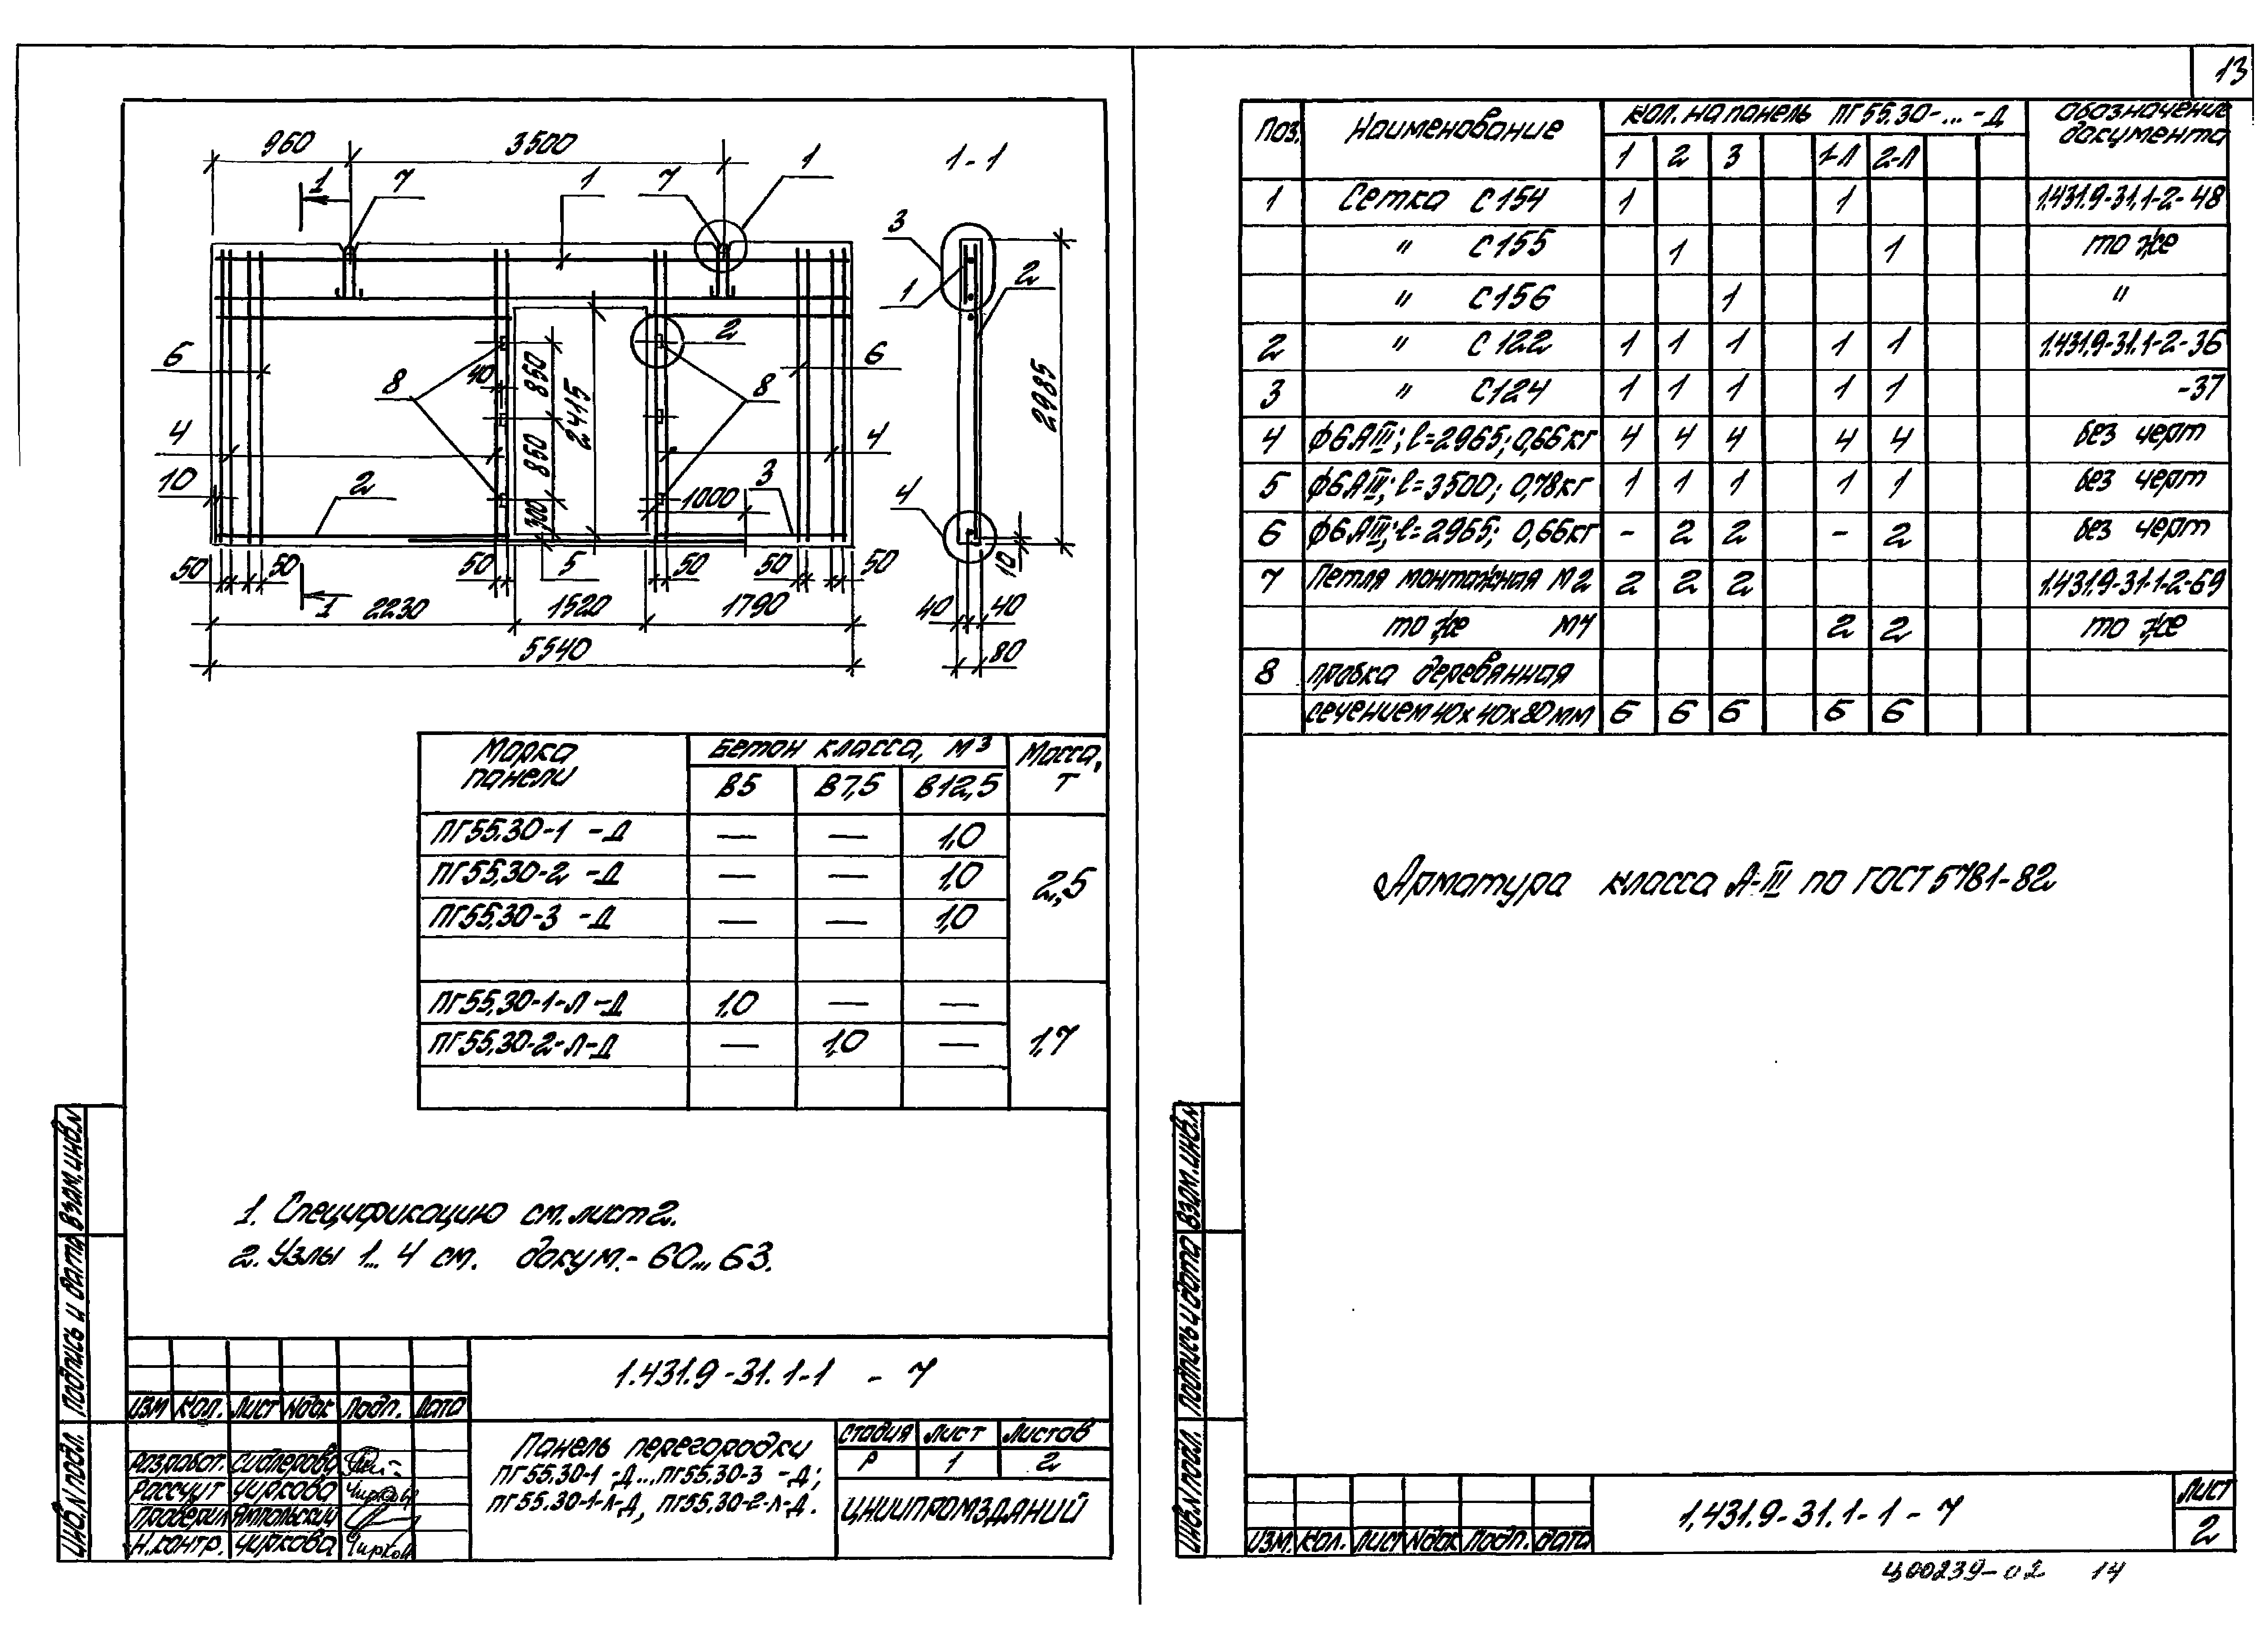 13
960
3500
1
1-1
1
7
1
7
3
1
2
2
6
8
40
850
2415
8
6
2985
4
850
4
10
2
300
1000
3
4
50
50
50
5
50
50
50
10
1
2230
1520
1790
40
40
5540
80
Марка панели
Бетон класса, м³
Масса, т
В5
В7,5
В12,5
ПГ55.30-1 -Д — — 1,0
ПГ55.30-2 -Д — — 1,0
2,5
ПГ55.30-3 -Д — — 1,0
ПГ55.30-1-Л-Д 1,0 — —
ПГ55.30-2-Л-Д — 1,0 —
1,7
1. Спецификацию см. лист 2.
2. Узлы 1... 4 см. докум.- 60... 63.
Взам. инв. N
Подпись и дата
Инв. N подл.
1.431.9-31.1-1 - 7
Изм Кол. Лист Nдок Подп. Дата
Разработ.
Рассчит Чиркова
Проверил Ямпольский
Н.контр. Чиркова
Панель перегородки
ПГ55.30-1 -Д...ПГ55.30-3 -Д;
ПГ55.30-1-Л-Д, ПГ55.30-2-Л-Д.
Стадия Лист Листов
Р 1 2
ЦНИИПРОМЗДАНИЙ
Поз. Наименование Кол. на панель ПГ55.30-...-Д Обозначение документа
1 2 3 1-Л 2-Л
1 Сетка С154 1 1 1.431.9-31.1-2-48
" С155 1 1 то же
" С156 1 "
2 " С122 1 1 1 1 1 1.431.9-31.1-2-36
3 " С124 1 1 1 1 1 -37
4 ф6АIII; l=2965; 0,66кг 4 4 4 4 4 без черт
5 ф6АIII; l=3500; 0,78кг 1 1 1 1 1 без черт
6 ф6АIII; l=2965; 0,66кг - 2 2 - 2 без черт
7 Петля монтажная М2 2 2 2 1.431.9-31.1-2-69
то же М4 2 2 то же
8 Пробка деревянная
сечением 40х40х80мм 6 6 6 6 6
Арматура класса А-III по ГОСТ 5781-82
Взам. инв. N
Подпись и дата
Инв. N подл.
Изм. Кол. Лист Nдок Подп. Дата
1.431.9-31.1-1-7
Лист
2
Ц00239-02 14